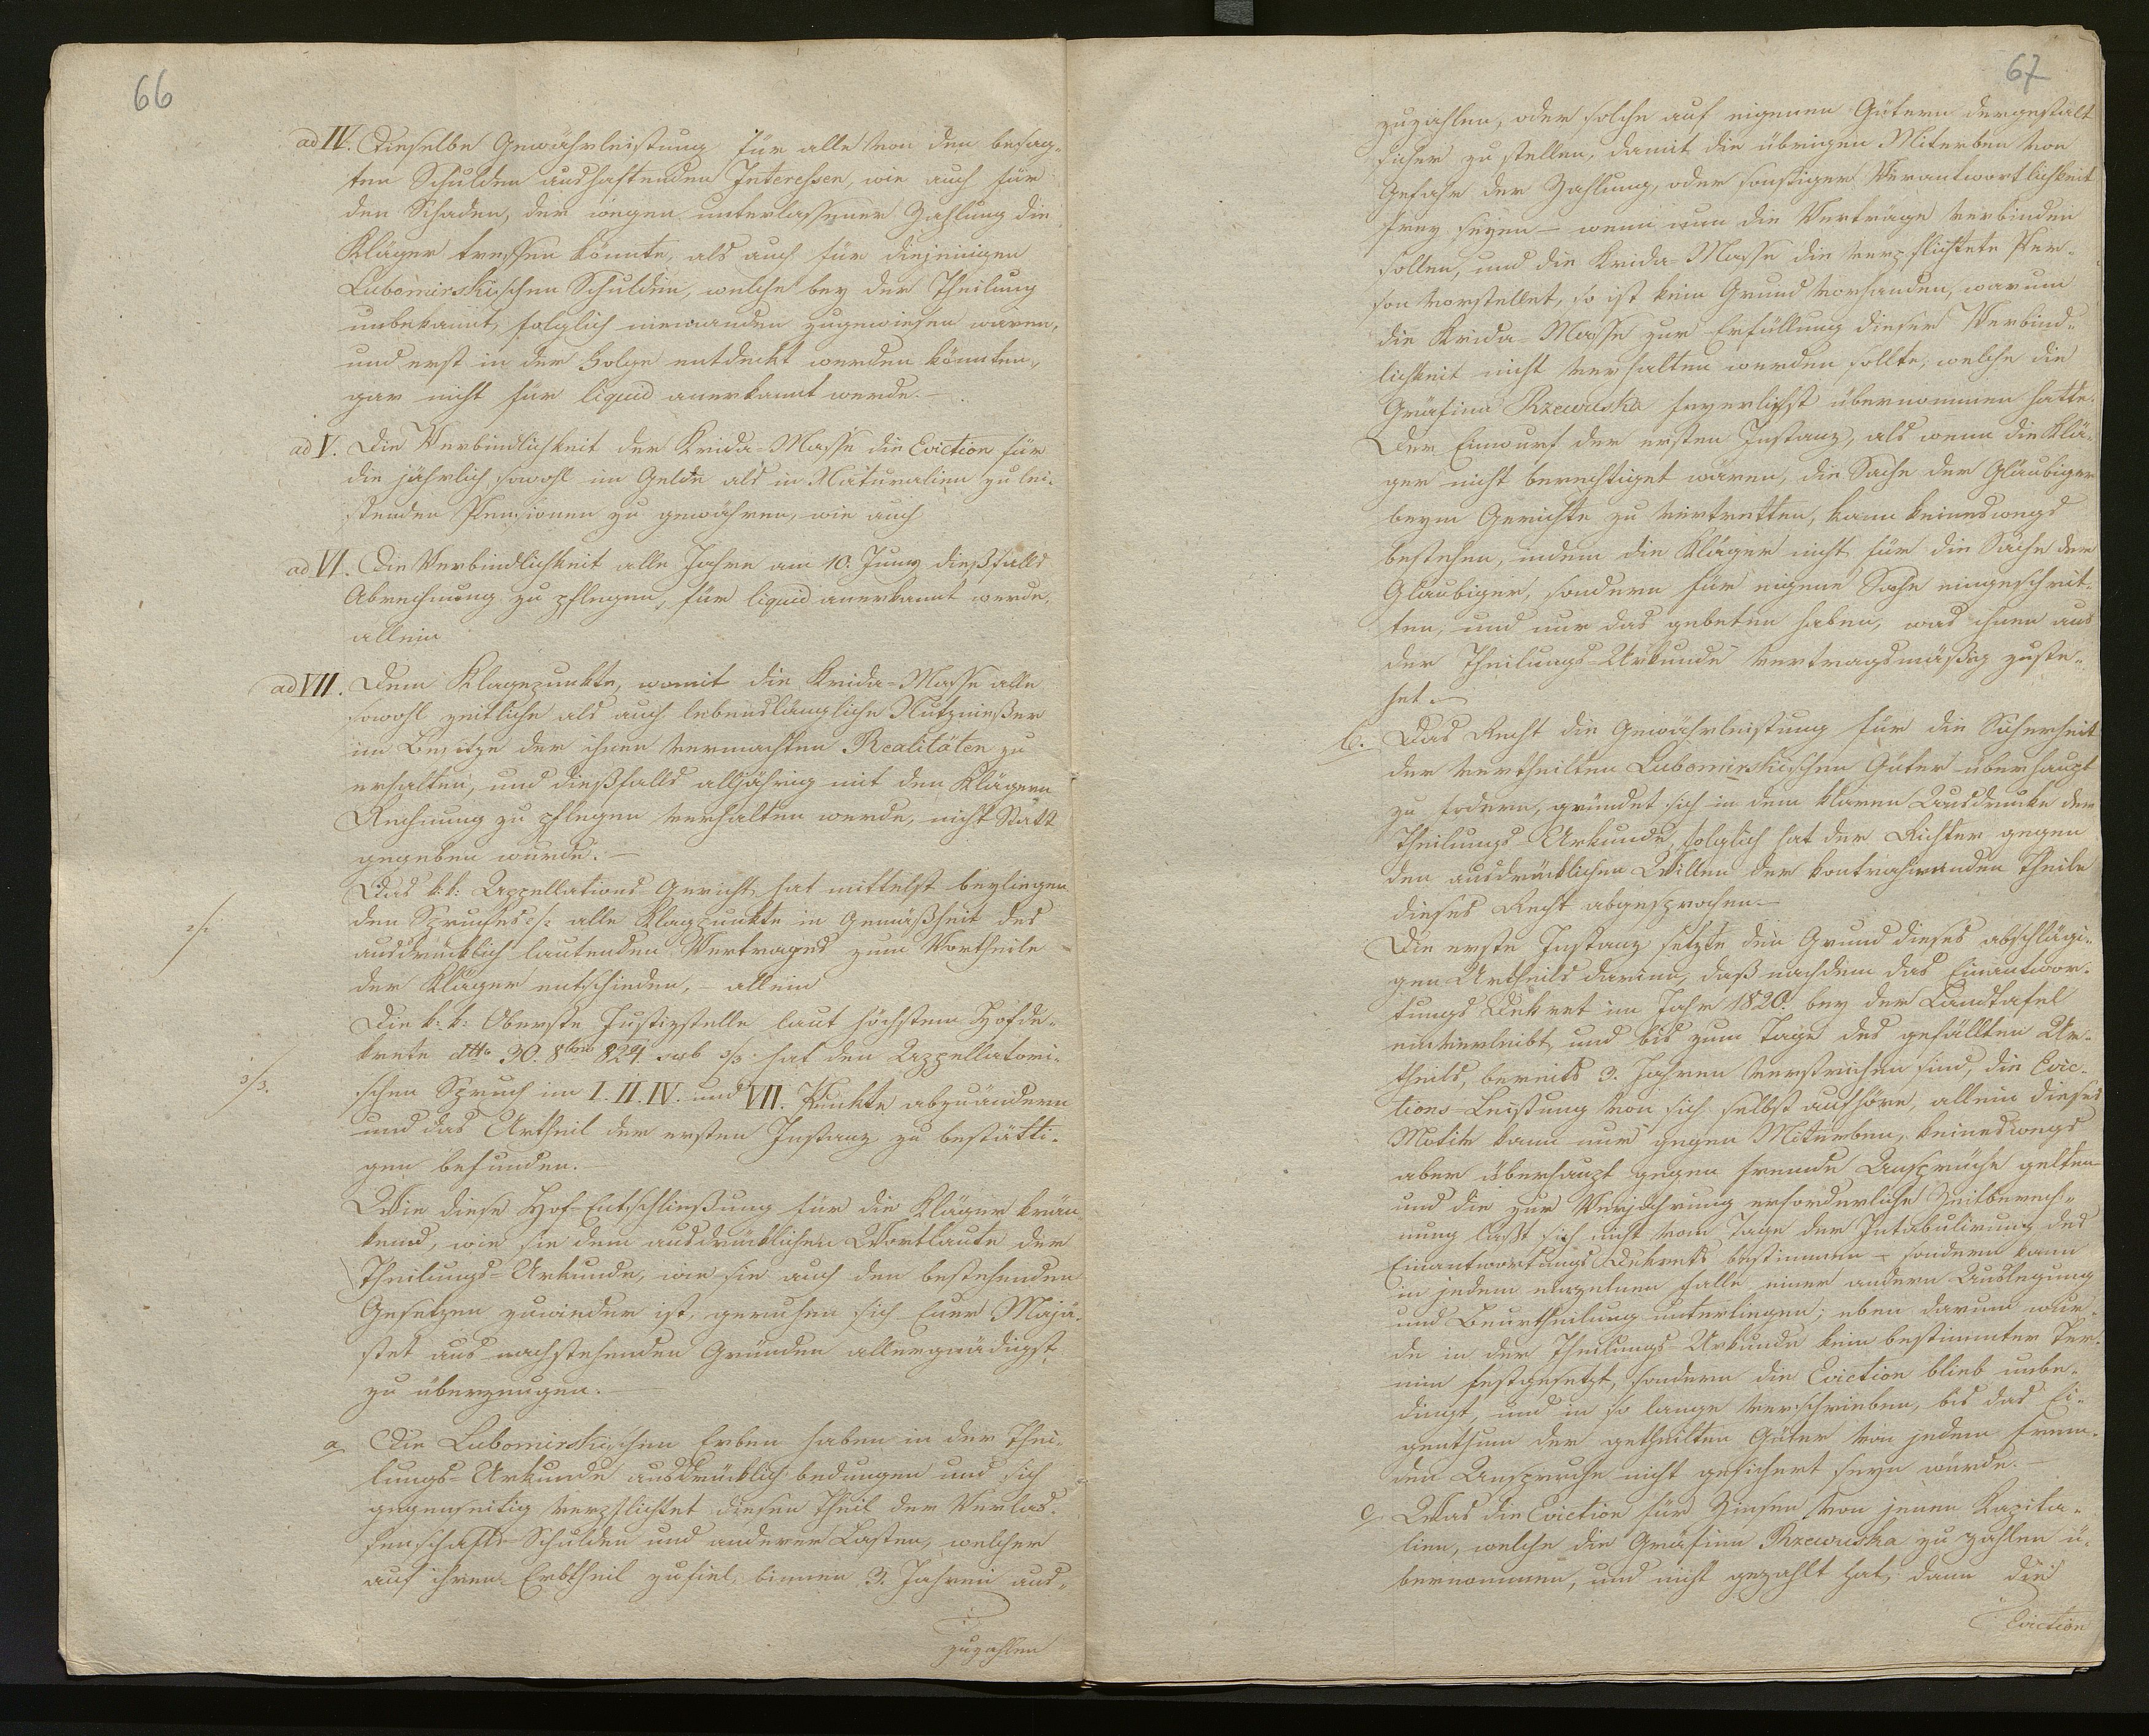 66
ad IV. Dieselbe Gewährleistung für alle von den besag-
ten Schulden aushaftenden Interessen, wie auch für
den Schaden, der wegen unterlassener Zahlung die
Kläger treffen könnte, als auch für diejenigen
Lubomirskischen Schulden, welche bey der Theilung
unbekannt, folglich niemanden zugewiesen waren,
und erst in der Folge entdeckt werden könnten,
gar nicht für liquid anerkannt werde. —
ad V. Die Verbindlichkeit der Krida-Masse die Eviction für
die jährlich sowohl im Gelde als in Naturalien zu lei-
stenden Pensionen zu gewähren, wie auch
ad VI. Die Verbindlichkeit alle Jahre am 10. Juny dießfalls
Abrechnung zu pflegen, für liquid anerkannt werde,
allein
ad VII. Dem Klagepunkte, womit die Krida-Masse alle
sowohl zeitliche als auch lebenslängliche Nutznießer
im Besitze der ihnen vermachten Realitäten zu
erhalten, und dießfalls alljährig mit den Klägern
Rechnung zu pflegen verhalten werde, nicht Statt
gegeben wurde. —
Das k: k: Appellations-Gericht hat mittelst beyliegen
2/. den Spruches 2/: alle Klagpunkte in Gemäßheit des
ausdrücklich lautenden Vertrages zum Vortheile
der Kläger entschieden, — allein
Die k: k: Oberste Justizstelle laut höchstem Hofde-
3/3. krete dtto 30. 8bris 824 sub 3/3: hat den Appellatori-
schen Spruch im I. II. IV. und VII. Punkte abzuändern
und das Urtheil der ersten Instanz zu bestätti-
gen befunden. —
Wie diese Hof-Entschließung für die Kläger krän
kend, wie sie dem ausdrücklichen Wortlaute der
Theilungs-Urkunde, wie sie auch den bestehenden
Gesetzen zuwieder ist, geruhen sich Euer Maje-
stet aus nachstehenden Gründen allergnädigst
zu überzeugen. —
a. Die Lubomirskischen Erben haben in der Thei-
lungs-Urkunde ausdrücklich bedungen und sich
gegenseitig verpflichtet diesen Theil der Verlas-
senschafts-Schulden und anderer Lasten, welcher
auf ihren Erbtheil zufiel, binnen 3. Jahren aus-
zuzahlen
67
zuzahlen, oder solche auf eigenen Gütern dergestalt
sicher zu stellen, damit die übrigen Miterben von
Gefahr der Zahlung, oder sonstiger Verantwortlichkeit
frey seyen — wenn nun die Verträge verbinden
sollen, und die Krida-Masse die verpflichtete Per-
son vorstellet, so ist kein Grund vorhanden, warum
die Krida-Masse zur Erfüllung dieser Verbind-
lichkeit nicht verhalten werden sollte, welche die
Gräfinn Rzewuska feyerlichst übernommen hatte.
Der Einwurf der ersten Instanz, als wenn die Klä-
ger nicht berechtiget wären, die Sache der Gläubiger
beym Gerichte zu vertretten, kann keineswegs
bestehen, indem die Kläger nicht für die Sache der
Gläubiger, sondern für eigene Sache eingeschrit-
ten, und nur das gebeten haben, was ihnen aus
der Theilungs-Urkunde vertragsmäßig zuste-
het. —
b. Das Recht die Gewährleistung für die Sicherheit
der vertheilten Lubomirskischen Güter überhaupt
zu fodern, gründet sich in dem klaren Ausdrucke der
Theilungs-Urkunde, folglich hat der Richter gegen
den ausdrücklichen Willen der kontrahirenden Theile
dieses Recht abgesprochen. —
Die erste Instanz setzte den Grund dieses abschlägi-
gen Urtheils darinn, daß nachdem das Einantwor-
tungs Dekret im Jahr 1820 bey der Landtafel
einverleibt, und bis zum Tage des gefällten Ur-
theils, bereits 3. Jahren verstrichen sind, die Evic-
tions-Leistung von sich selbst aufhöre, allein dieses
Motiv kann nur gegen Miterben, keineswegs
aber überhaupt gegen fremde Ansprüche gelten
und die zur Verjährung erforderliche Zeitberech-
nung lasst sich nicht vom Tage der Intabulirung des
Einantwortungs Dekrets bestimmen — sondern kann
in jedem einzelnen Falle einer andern Auslegung
und Beurtheilung unterliegen; eben darum wur-
de in der Theilungs-Urkunde kein bestimmter Ter-
min festgesetzt, sondern die Eviction blieb unbe-
dingt, und in so lange verschrieben, bis das Ei-
genthum der getheilten Güter von jedem frem-
den Anspruche nicht gesichert seyn würde. —
c. Was die Eviction für Zinsen von jenen Kapita-
lien, welche die Gräfinn Rzewuska zu zahlen ü-
bernommen, und nicht gezahlt hat, dann die
Eviction